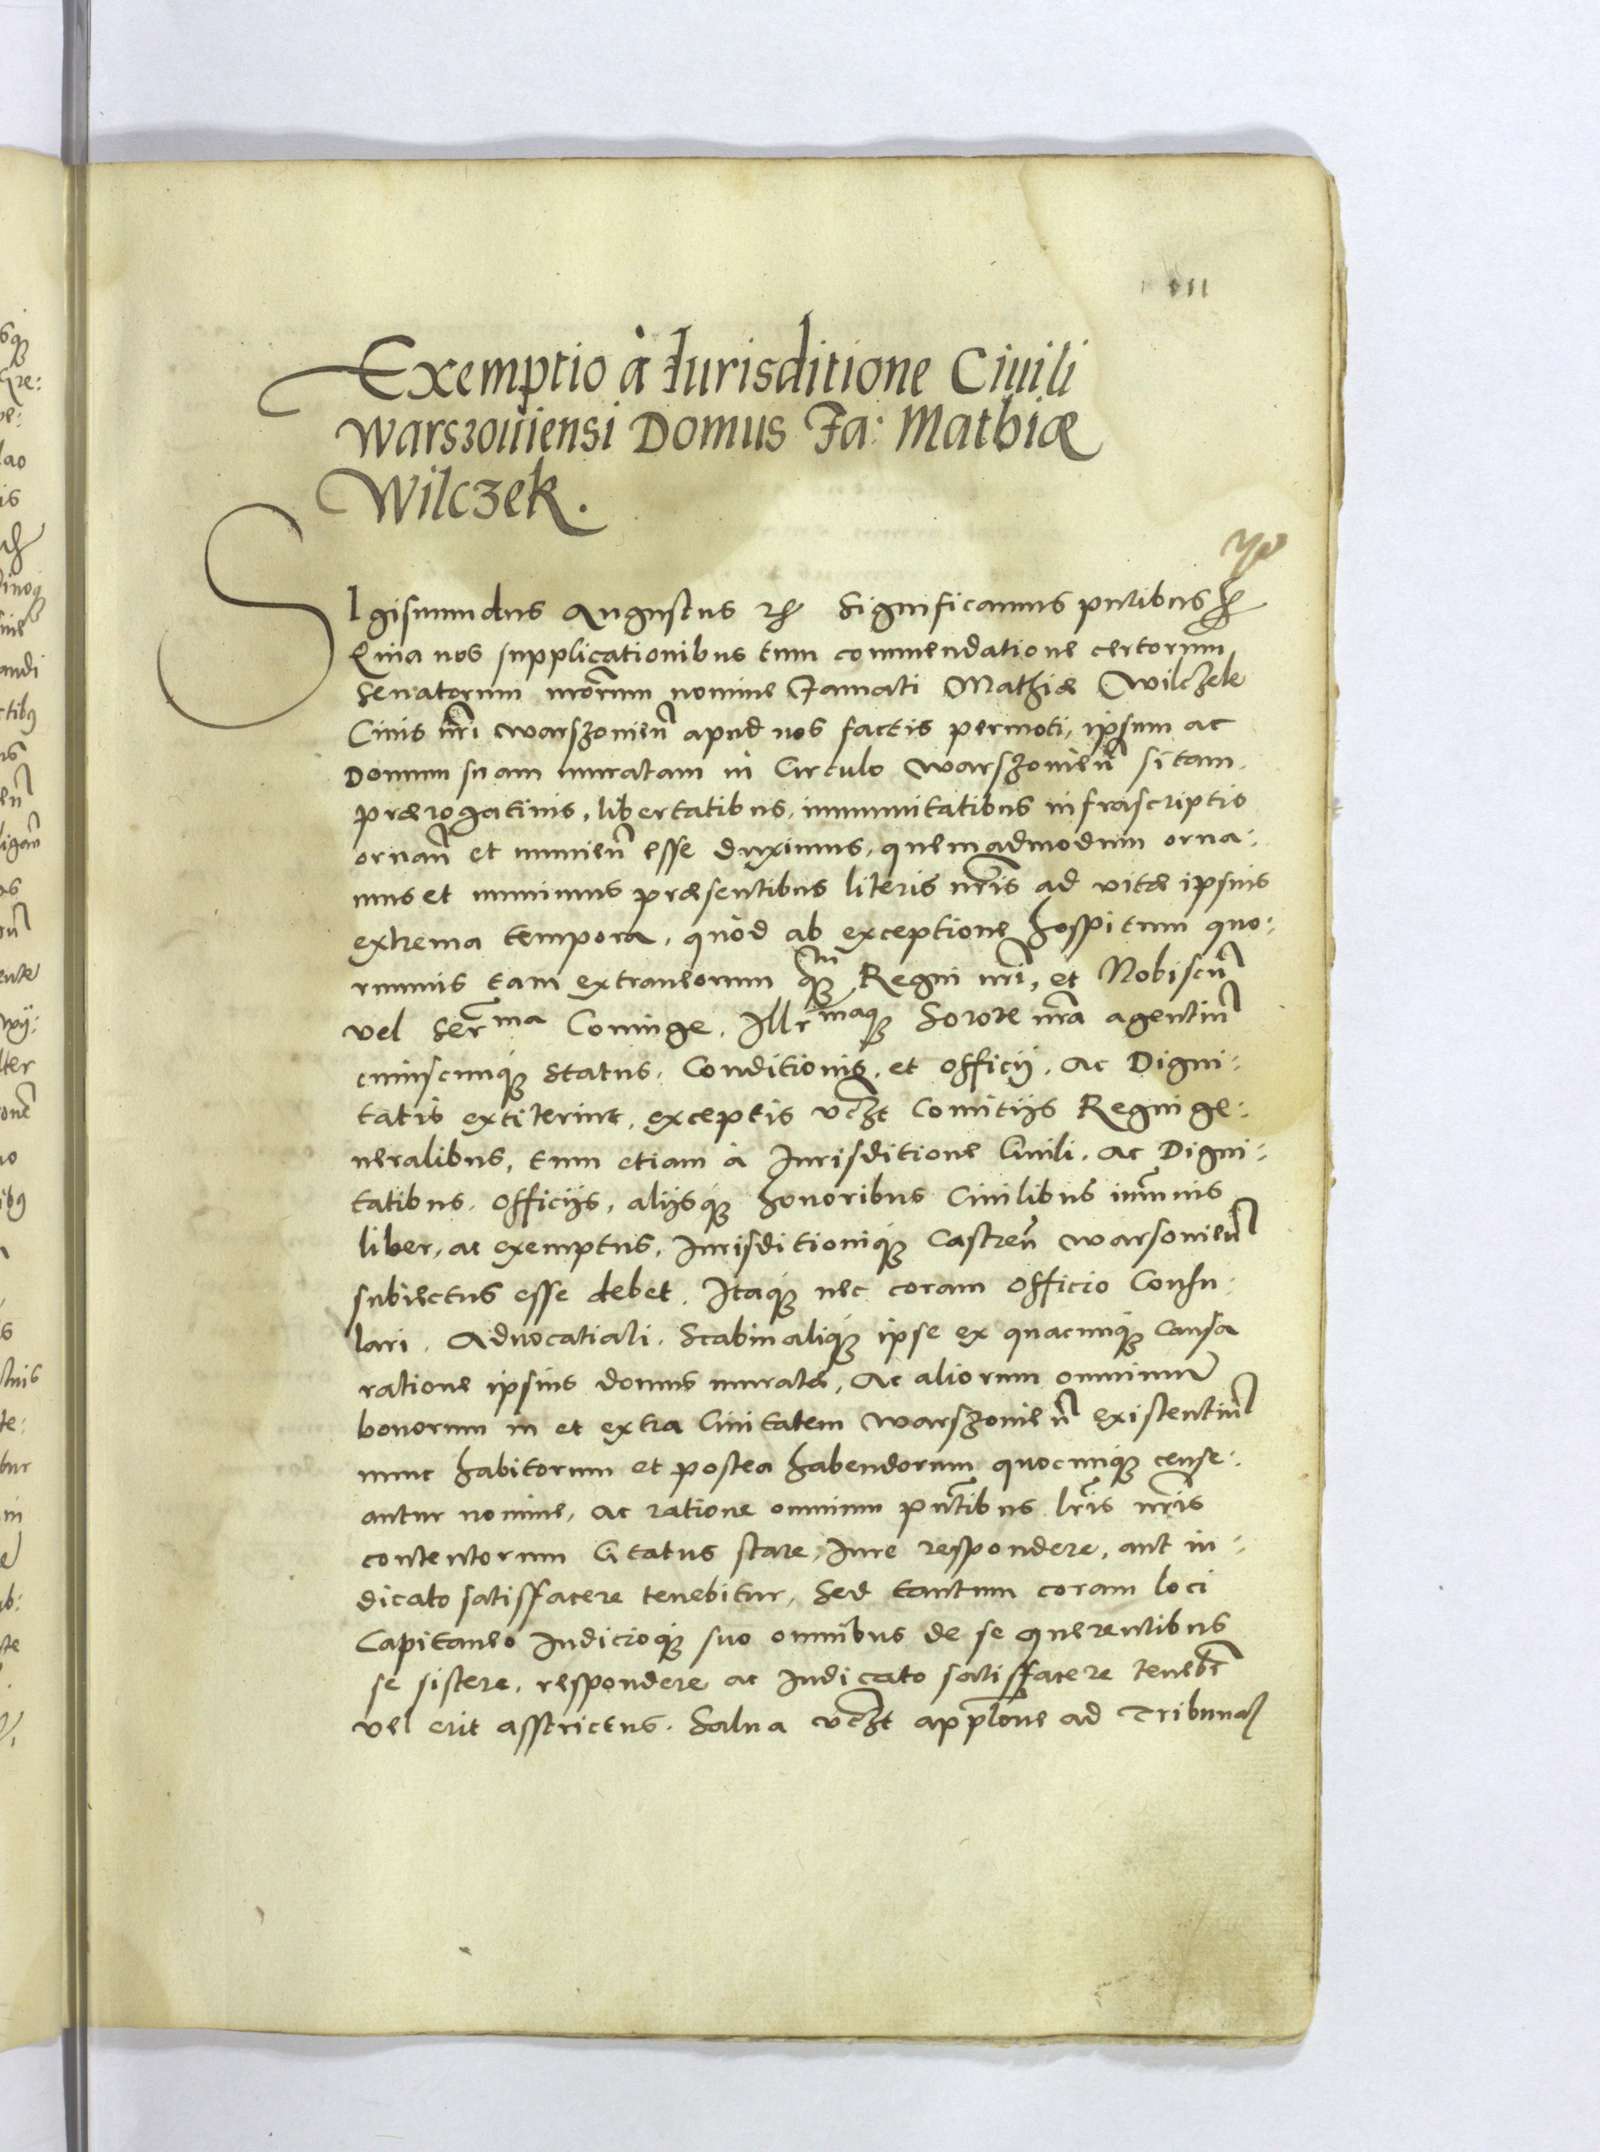 11
Exemptio à Iurisditione Ciuili
Warszouiensi Domus Fa: Mathiæ
Wilczek.
Sigismundus Augustus etc Significamus pntibus etc
Quia nos supplicationibus tum commendatione certorum
Senatorum nrorum nomine Famati Mathiæ Wilczek
Ciuis nri Warszouien apud nos factis permoti, ipsum ac
Domum suam muratam in Circulo Warszouien sitam.
prærogatiuis, libertatibus, immunitatibus infrascriptis
ornan et munien esse duximus, quemadmodum orna:
mus et munimus præsentibus literis nris ad vitæ ipsius
extrema tempora, quòd ab exceptione hospitum quo:
rumuis tam extraneorum qm Regni nri, et Nobiscu
vel Ser ma Coniuge, Illr maque Sorore nra agentiu
cuiuscunque Status, Conditionis, et officij, Ac Digni:
tatis extiterint, exceptis vczt Comitijs Regni ge:
neralibus, tum etiam à Iurisditione Ciuili, Ac Digni:
tatibus, officijs, alijsque honoribus Ciuilibus immunis
liber, ac exemptus, Iurisditionique Castren Warsouien
subiectus esse debet. Itaque nec coram officio Consu:
lari, Aduocatiali, Scabinalique ipse ex quacunque causa
ratione ipsius domus muratæ, Ac aliorum omnium
bonorum in et extra Ciuitatem Warszouien existentiu
nunc habitorum et postea habendorum quocunque cense:
antur nomine, Ac ratione omnium pntibus lris nris
contentorum Citatus stare, Iure respondere, aut iu:
dicato satisfacere tenebitur, Sed tantum coram loci
Capitaneo Iudicioque suo omnibus de se querentibus
se sistere, respondere ac Iudicato satisfacere tenebr
vel erit asstrictus. Salua vczt applone ad Tribunal